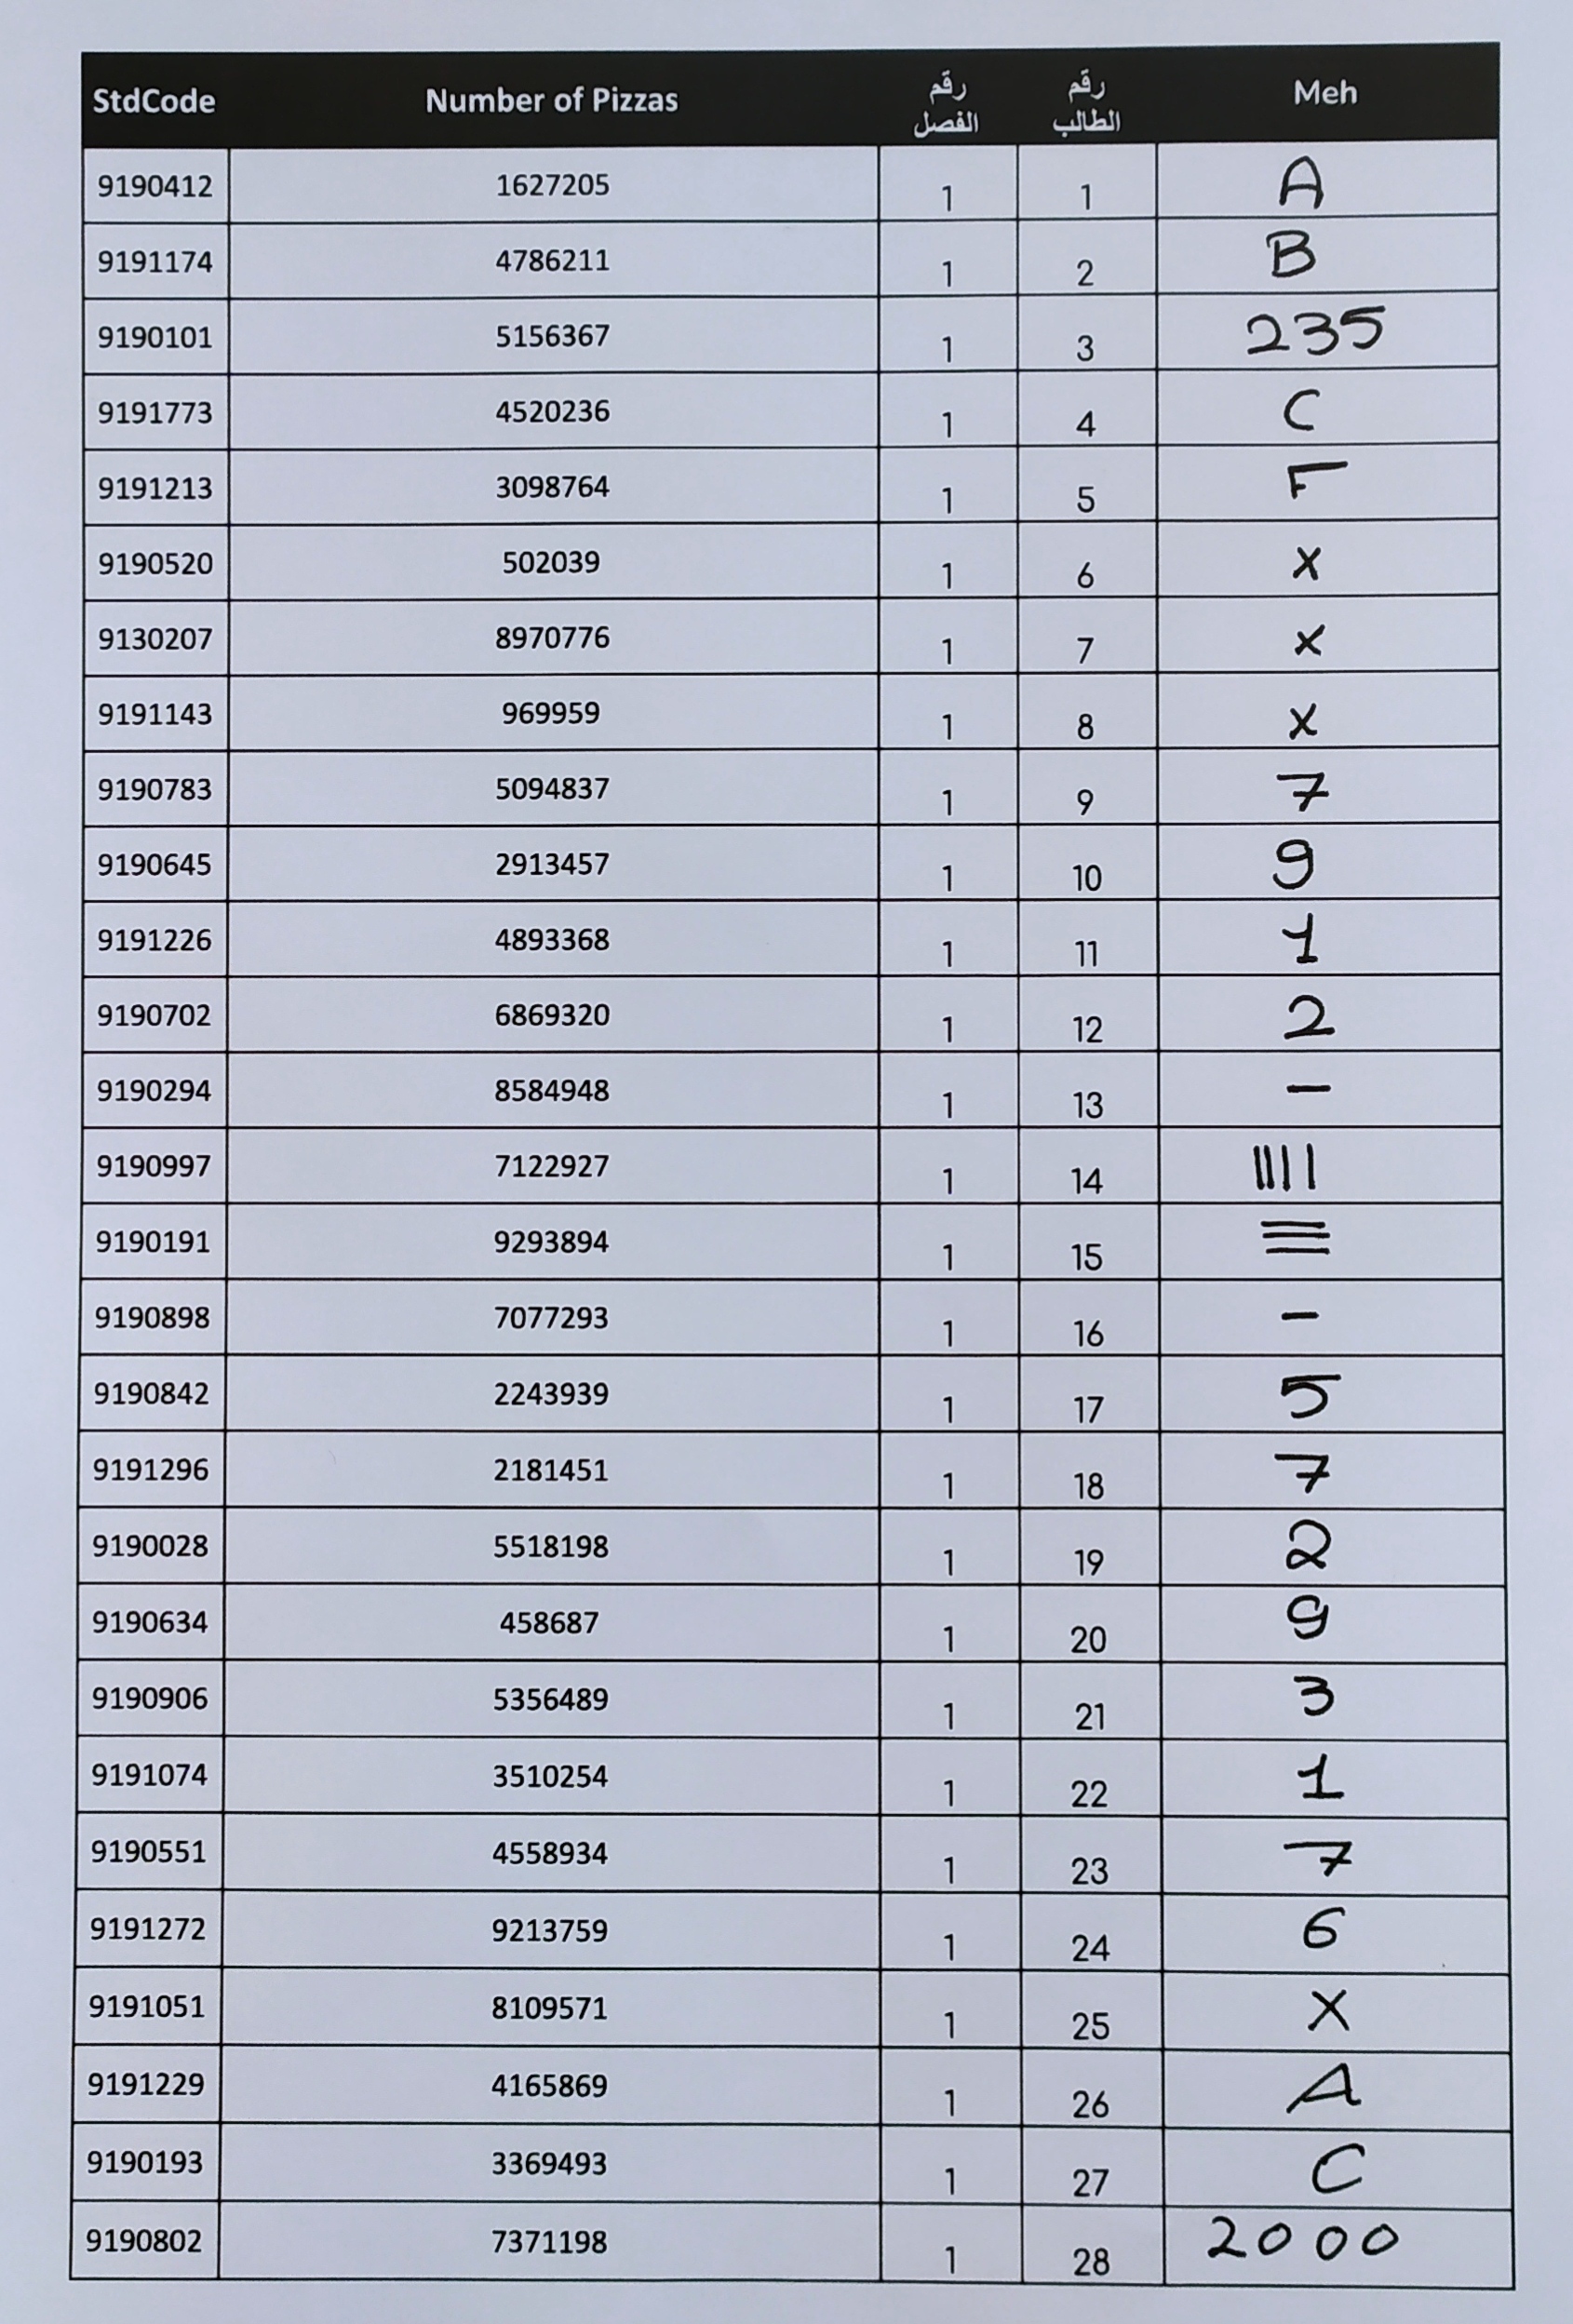 StdCode Number of Pizzas رقم الفصل رقم الطالب Meh
9190412 1627205 1 1 A
9191174 4786211 1 2 B
9190101 5156367 1 3 235
9191773 4520236 1 4 C
9191213 3098764 1 5 F
9190520 502039 1 6 x
9130207 8970776 1 7 x
9191143 969959 1 8 x
9190783 5094837 1 9 7
9190645 2913457 1 10 9
9191226 4893368 1 11 1
9190702 6869320 1 12 2
9190294 8584948 1 13 –
9190997 7122927 1 14 |||||
9190191 9293894 1 15 ≡
9190898 7077293 1 16 –
9190842 2243939 1 17 5
9191296 2181451 1 18 7
9190028 5518198 1 19 2
9190634 458687 1 20 9
9190906 5356489 1 21 3
9191074 3510254 1 22 1
9190551 4558934 1 23 7
9191272 9213759 1 24 6
9191051 8109571 1 25 X
9191229 4165869 1 26 A
9190193 3369493 1 27 C
9190802 7371198 1 28 2000